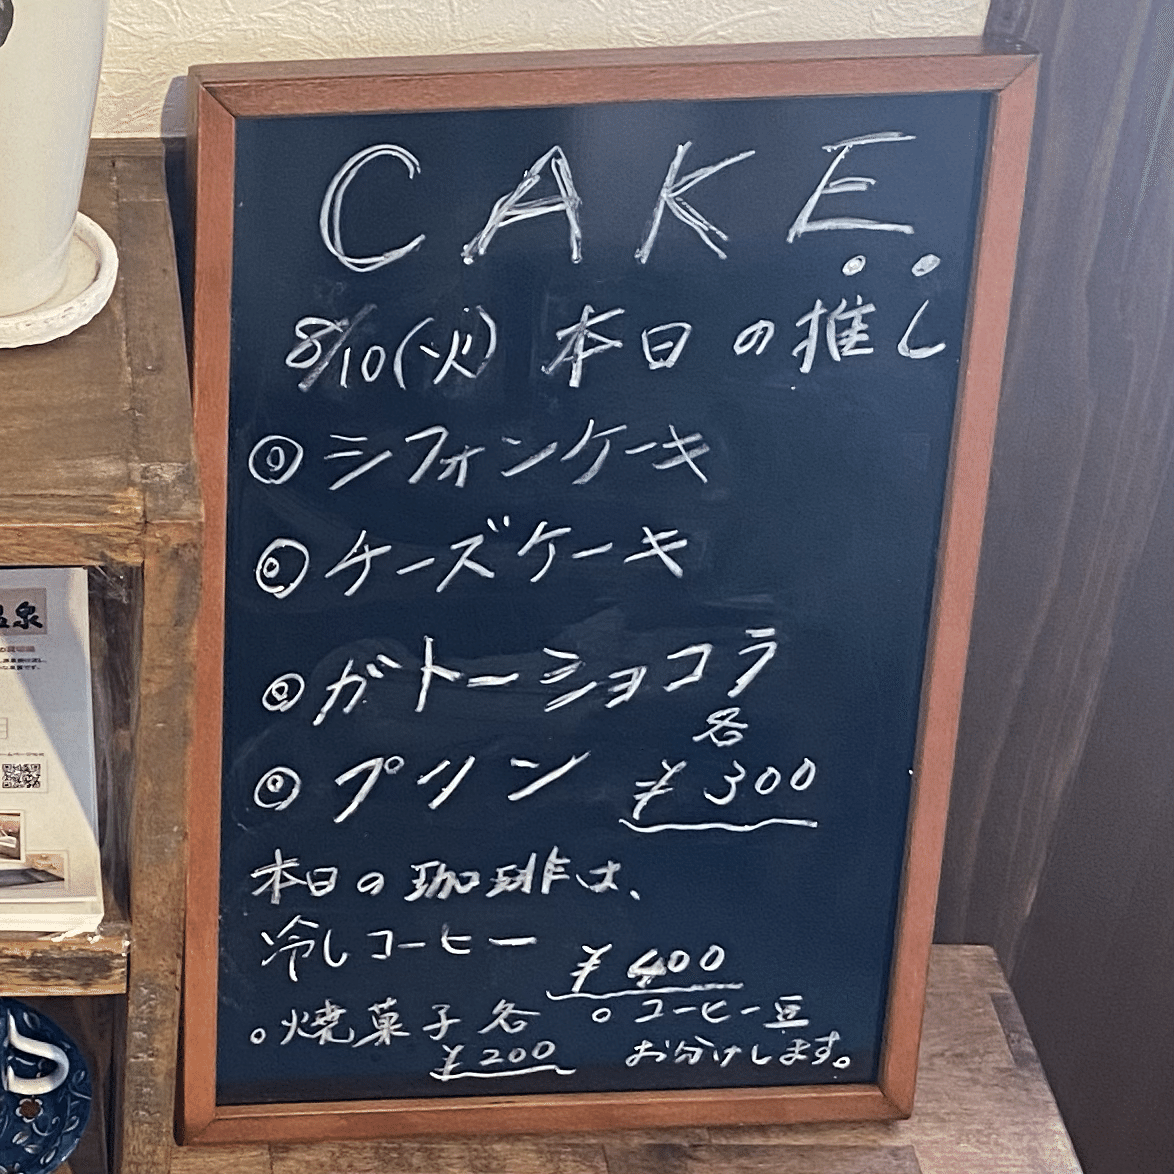 CAKE
8/10(火) 本日の推し
◎シフォンケーキ
◎チーズケーキ
◎ガトーショコラ
各
◎プリン ¥300
本日の珈琲は、
冷しコーヒー
¥400
○焼菓子各
¥200
○コーヒー豆
お分けします。
泉